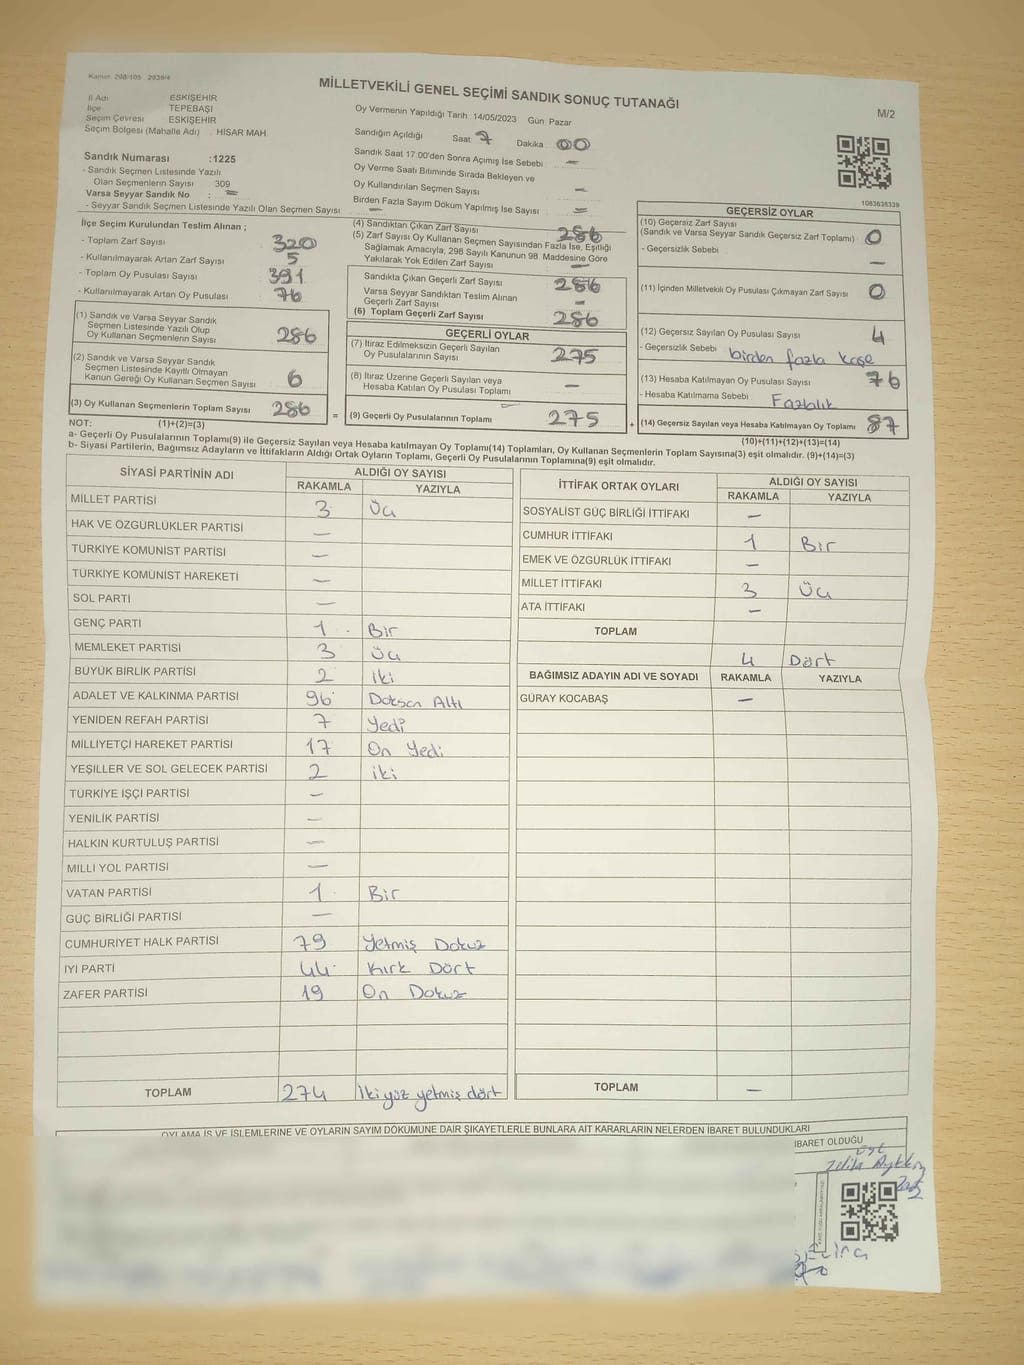 Kanun: 298/105 2839/4
MİLLETVEKİLİ GENEL SEÇİMİ SANDIK SONUÇ TUTANAĞI
M/2
İl Adı ESKİŞEHİR
İlçe TEPEBAŞI
Seçim Çevresi ESKİŞEHİR
Seçim Bölgesi (Mahalle Adı) : HİSAR MAH
Oy Vermenin Yapıldığı Tarih : 14/05/2023 Gün: Pazar
Sandığın Açıldığı Saat 7 Dakika 00
Sandık Saat 17:00'den Sonra Açımış İse Sebebi —
Oy Verme Saati Bitiminde Sırada Bekleyen ve
Oy Kullandırılan Seçmen Sayısı —
Birden Fazla Sayım Döküm Yapılmış İse Sayısı —
Sandık Numarası :1225
- Sandık Seçmen Listesinde Yazılı
Olan Seçmenlerin Sayısı 309
Varsa Seyyar Sandık No : —
- Seyyar Sandık Seçmen Listesinde Yazılı Olan Seçmen Sayısı —
1083838339
İlçe Seçim Kurulundan Teslim Alınan ;
- Toplam Zarf Sayısı 320
- Kullanılmayarak Artan Zarf Sayısı 5
- Toplam Oy Pusulası Sayısı 391
- Kullanılmayarak Artan Oy Pusulası 76
(1) Sandık ve Varsa Seyyar Sandık
Seçmen Listesinde Yazılı Olup
Oy Kullanan Seçmenlerin Sayısı 286
(2) Sandık ve Varsa Seyyar Sandık
Seçmen Listesinde Kayıtlı Olmayan
Kanun Gereği Oy Kullanan Seçmen Sayısı 6
(3) Oy Kullanan Seçmenlerin Toplam Sayısı 286
(4) Sandıktan Çıkan Zarf Sayısı 286
(5) Zarf Sayısı Oy Kullanan Seçmen Sayısından Fazla İse, Eşitliği
Sağlamak Amacıyla, 298 Sayılı Kanunun 98. Maddesine Göre
Yakılarak Yok Edilen Zarf Sayısı —
Sandıkta Çıkan Geçerli Zarf Sayısı 286
Varsa Seyyar Sandıktan Teslim Alınan
Geçerli Zarf Sayısı —
(6) Toplam Geçerli Zarf Sayısı 286
GEÇERLİ OYLAR
(7) İtiraz Edilmeksizin Geçerli Sayılan
Oy Pusulalarının Sayısı 275
(8) İtiraz Üzerine Geçerli Sayılan veya
Hesaba Katılan Oy Pusulası Toplamı —
= (9) Geçerli Oy Pusulalarının Toplamı 275 +
GEÇERSİZ OYLAR
(10) Geçersiz Zarf Sayısı
(Sandık ve Varsa Seyyar Sandık Geçersiz Zarf Toplamı) 0
- Geçersizlik Sebebi —
(11) İçinden Milletvekili Oy Pusulası Çıkmayan Zarf Sayısı 0
(12) Geçersiz Sayılan Oy Pusulası Sayısı 4
- Geçersizlik Sebebi birden fazla kaşe
(13) Hesaba Katılmayan Oy Pusulası Sayısı 76
- Hesaba Katılmama Sebebi Fazlalık
(14) Geçersiz Sayılan veya Hesaba Katılmayan Oy Pusulası Toplamı 87
NOT: (1)+(2)=(3)
(10)+(11)+(12)+(13)=(14)
a- Geçerli Oy Pusulalarının Toplamı(9) ile Geçersiz Sayılan veya Hesaba katılmayan Oy Toplamı(14) Toplamları, Oy Kullanan Seçmenlerin Toplam Sayısına(3) eşit olmalıdır. (9)+(14)=(3)
b- Siyasi Partilerin, Bağımsız Adayların ve İttifakların Aldığı Ortak Oyların Toplamı, Geçerli Oy Pusulalarının Toplamına(9) eşit olmalıdır.
SİYASİ PARTİNİN ADI ALDIĞI OY SAYISI
RAKAMLA YAZIYLA
MİLLET PARTİSİ 3 Üç
HAK VE ÖZGÜRLÜKLER PARTİSİ —
TÜRKİYE KOMÜNİST PARTİSİ —
TÜRKİYE KOMÜNİST HAREKETİ —
SOL PARTİ —
GENÇ PARTİ 1 Bir
MEMLEKET PARTİSİ 3 Üç
BÜYÜK BİRLİK PARTİSİ 2 İki
ADALET VE KALKINMA PARTİSİ 96 Doksan Altı
YENİDEN REFAH PARTİSİ 7 Yedi
MİLLİYETÇİ HAREKET PARTİSİ 17 On Yedi
YEŞİLLER VE SOL GELECEK PARTİSİ 2 iki
TÜRKİYE İŞÇİ PARTİSİ —
YENİLİK PARTİSİ —
HALKIN KURTULUŞ PARTİSİ —
MİLLİ YOL PARTİSİ —
VATAN PARTİSİ 1 Bir
GÜÇ BİRLİĞİ PARTİSİ —
CUMHURİYET HALK PARTİSİ 79 Yetmiş Dokuz
İYİ PARTİ 44 Kırk Dört
ZAFER PARTİSİ 19 On Dokuz
TOPLAM 274 İkiyüz yetmiş dört
İTTİFAK ORTAK OYLARI ALDIĞI OY SAYISI
RAKAMLA YAZIYLA
SOSYALİST GÜÇ BİRLİĞİ İTTİFAKI —
CUMHUR İTTİFAKI 1 Bir
EMEK VE ÖZGÜRLÜK İTTİFAKI —
MİLLET İTTİFAKI 3 Üç
ATA İTTİFAKI —
TOPLAM
4 Dört
BAĞIMSIZ ADAYIN ADI VE SOYADI RAKAMLA YAZIYLA
GÜRAY KOCABAŞ —
TOPLAM —
OYLAMA İŞ VE İŞLEMLERİNE VE OYLARIN SAYIM DÖKÜMÜNE DAİR ŞİKAYETLERLE BUNLARA AİT KARARLARIN NELERDEN İBARET BULUNDUKLARI
İBARET OLDUĞU